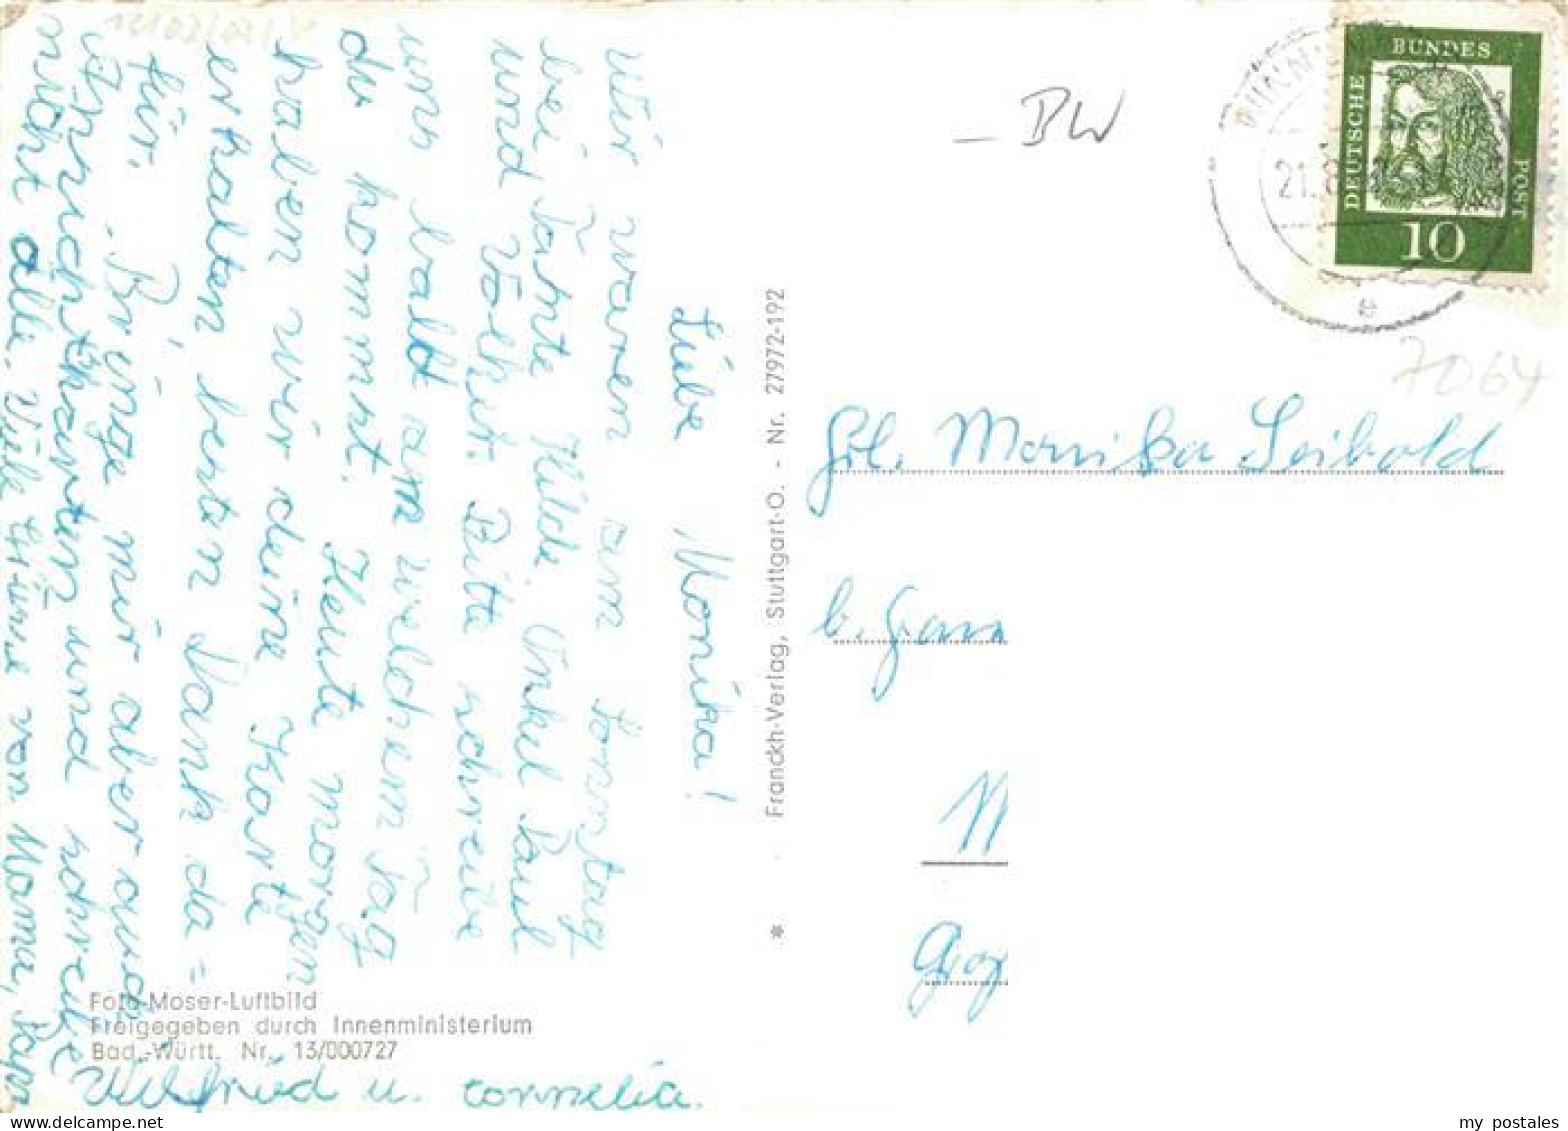 Liebe Monika!
Wir waren am Sonntag
bei Tante Hilde, Onkel Paul
und Volker. Bitte schreibe
uns bald am welchem Tag
du kommst. Heute morgen
haben wir deine Karte
erhalten, besten Dank da =
für. Bringe mir aber auch
Ansichtskarten und schreibe
nicht alle. Viele Grüsse von Mama, Papa
Wilfried u. Cornelia.
Foto-Moser-Luftbild
Freigegeben durch Innenministerium
Bad.-Württ. Nr. 13/000727
* Franckh-Verlag, Stuttgart-O. - Nr. 27972-192
– BW
DEUTSCHE BUNDES POST
10
21.8
e
7064
Frl. Monika Seibold
b. Fam
my postales